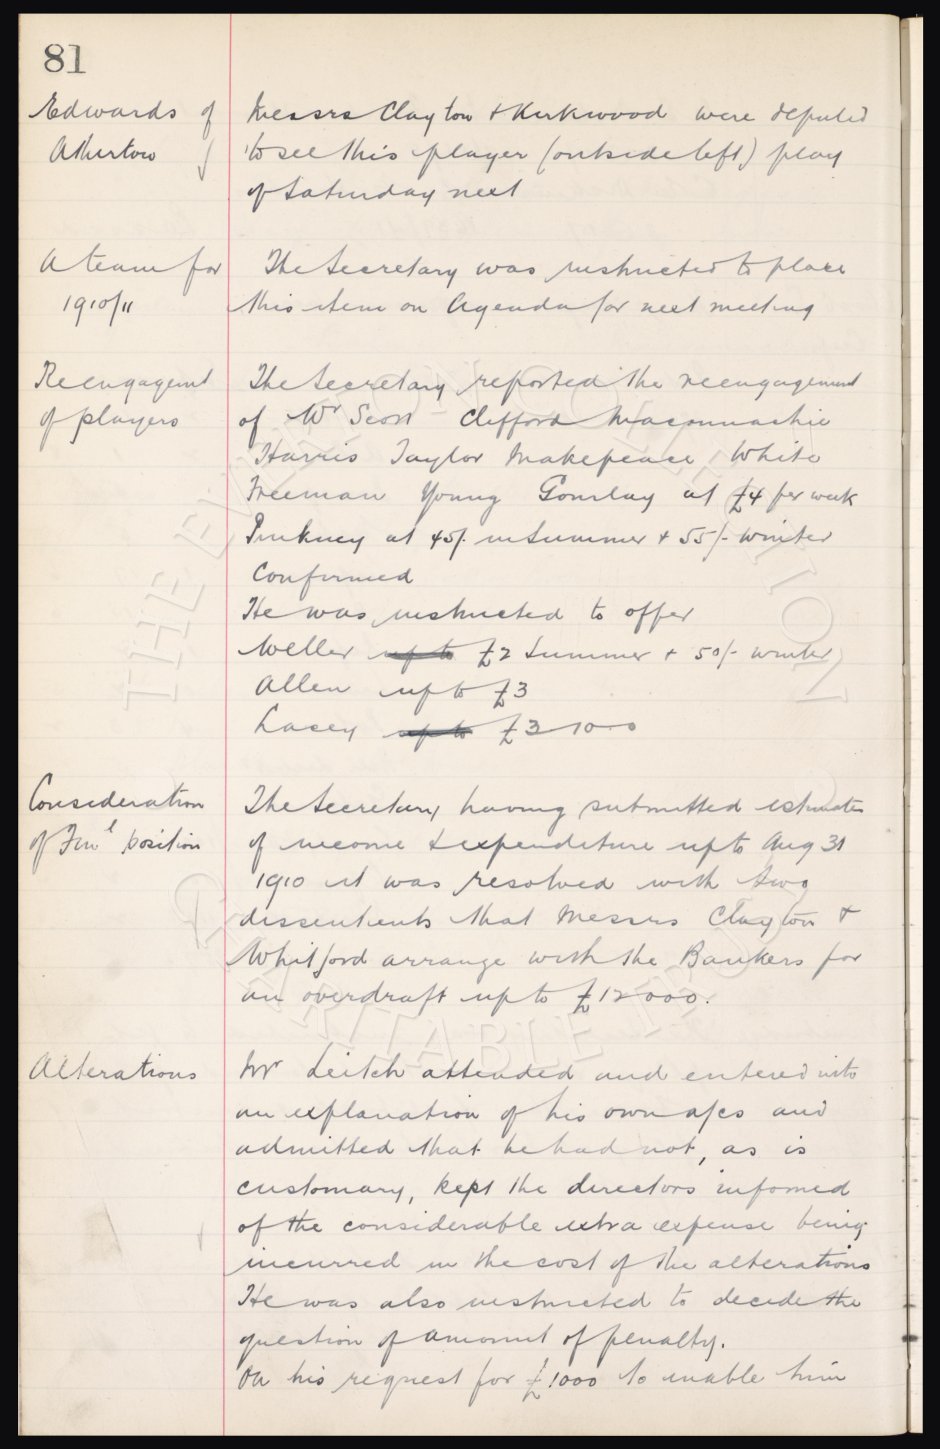 81
Edwards of
Atherton
Messrs Clayton & Kirkwood were deputed
to see this player (outside left) play
of Saturday next
A team for
1910/11
The Secretary was instructed to place
this item on Agenda for next meeting
Reengagemt
of players
The Secretary reported the reengagement
of Wr Scott Clifford Maconnachie
Harris Taylor Makepeace White
Freeman Young Gourlay at £4 per week
Pinkney at 45/- in Summer & 55/- winter
Confirmed
He was instructed to offer
Weller up to £2 Summer & 50/- winter
Allen up to £3
Lacey up to £3-10-0
Consideration
of Finl position
The Secretary having submitted estimates
of income & expenditure up to Aug 31
1910 it was resolved with two
dissentients that Messrs Clayton &
Whitford arrange with the Bankers for
an overdraft up to £12000.
Alterations
Mr Leitch attended and entered into
an explanation of his own a/cs and
admitted that he had not, as is
customary, kept the directors informed
of the considerable extra expense being
incurred in the cost of the alterations
He was also instructed to decide the
question of amount of penalty.
On his request for £1000 to enable him
THE EVERTON COLLECTION
CHARITABLE TRUST